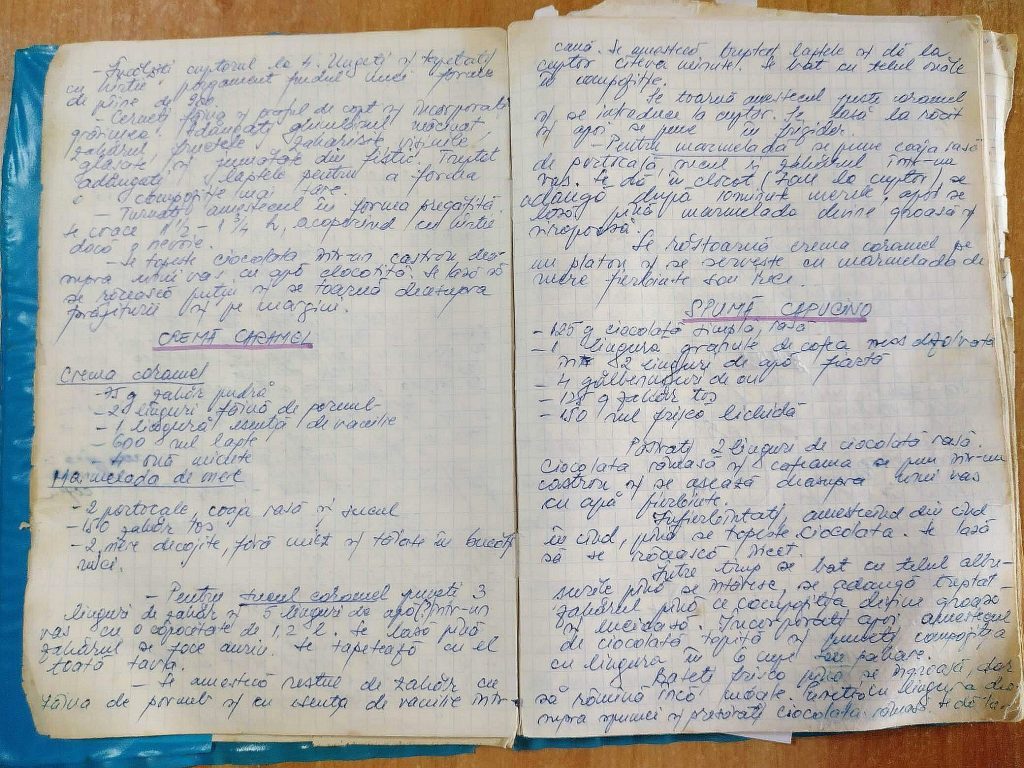 - Încălziți cuptorul la 4. Ungeți și tapetați
cu hîrtie pergament fundul unei forme
de pîine de 900.
- Cerneți făina și praful de copt și incorporați
grăsimea. Adăugați ghimbirul măcinat,
zahărul fructele zaharisite, vișinile
glasate și jumătate din fistic. Treptat
adăugați și laptele pentru a forma
o compoziție mai tare.
- Turnați amestecul în forma pregătită
se coace 1 1/2 - 1 3/4 h, acoperind cu hîrtie
dacă e nevoie.
- Se topește ciocolata într-un castron dea-
supra unui vas cu apă clocotită. Se lasă să
se răcească puțin și se toarnă deasupra
prăjiturii și pe margini.
CREMĂ CARAMEL
Crema caramel
- 75 g zahăr pudră
- 2 linguri făină de porumb
- 1 lingură esență de vanilie
- 600 ml lapte
- 4 ouă
Marmelada de mere
- 2 portocale, coaja rasă și sucul
- 150 zahăr tos
- 2 mere decojite, fără miez și tăiate în bucăți
mici.
- Pentru sucul caramel puneți 3
linguri de zahăr și 5 linguri de apă(?) într-un
vas cu o capacitate de 1,2 l. Se lasă pînă
zahărul se face auriu. Se tapetează cu el
toată tava.
- Se amestecă restul de zahăr cu
făina de porumb și cu esența de vanilie într-
cană. Se amestecă treptat laptele și dă la
cuptor cîteva minute. Se bat cu telul ouăle
în compoziție.
Se toarnă amestecul peste caramel
și se introduce la cuptor. Se lasă la răcit
și apoi se pune în frigider.
- Pentru marmeladă se pune coaja rasă
de portocală, sucul și zahărul într-un
vas. Se dă în clocot (tot la cuptor) se
adaugă după 10 minute merele, apoi se
lasă pînă marmelada devine groasă și
siropoasă.
Se răstoarnă crema caramel pe
un platou și se servește cu marmelada de
mere fierbinte sau rece.
SPUMĂ CAPUCINO
- 125 g ciocolată simplă, rasă
- 1 lingură granule de cafea ness dizolvată
în 2 linguri de apă fiartă
- 4 gălbenușuri de ou
- 125 g zahăr tos
- 150 ml frișcă lichidă
Păstrați 2 linguri de ciocolată rasă.
Ciocolata rămasă și cafeaua se pun într-un
castron și se așează deasupra unui vas
cu apă fierbinte.
Înfierbîntați, amestecînd din cînd
în cînd, pînă se topește ciocolata. Se lasă
să se răcească încet.
Între timp se bat cu telul albu-
șurile pînă se întăresc, se adaugă treptat
zahărul pînă ce compoziția devine groasă
și lucioasă. Încorporați apoi amestecul
de ciocolată topită și puneți compoziția
cu lingura în 6 cupe sau pahare.
Bateți frișca pînă se îngroașă, dar
să rămînă încă moale. Puneți cu lingura dea-
supra spumei și presărați ciocolata rămasă. Se dă la